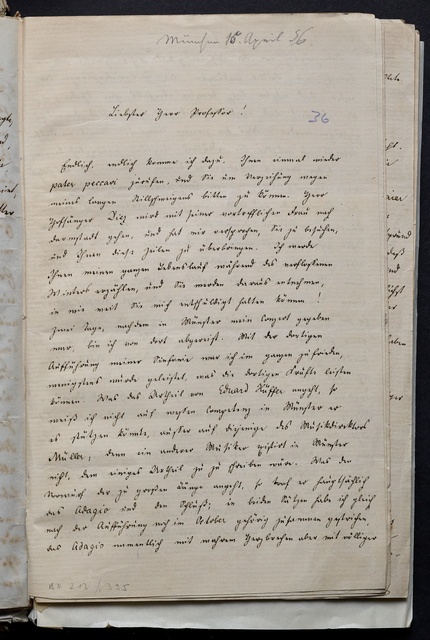 München 15. April 56
Liebster Herr Professor!
36
Endlich, endlich komme ich dazu, Ihnen einmal wieder
pater peccavi zurufen, und Sie um Verzeihung wegen
meines langen Stillschweigens bitten zu können. Herr
Hofsänger Diez wird mit seiner vortrefflichen Frau nach
Darmstadt gehen, und hat mir versprochen, Sie zu besuchen,
und Ihnen diese Zeilen zu überbringen. Ich werde
Ihnen meinen ganzen Lebenslauf während des verflossenen
Winters erzählen, und Sie werden daraus entnehmen,
in wie weit Sie mich entschuldigt halten können!
Zwei Tage, nachdem in Münster mein Concert gegeben
war, bin ich von dort abgereist. Mit der dortigen
Aufführung meiner Sinfonie war ich im ganzen zufrieden,
wenigstens wurde geleistet, was die dortigen Kräfte leisten
können. Was das Urtheil von Eduard angeht, so
weiß ich nicht auf Competenz in Münster er
es stützen könnte, außer auf diejenige des Musikdirektors
Müller, denn ein anderer Musiker existirt in Münster
nicht, dem einiges Urtheil zu zu schreiben wäre. Was den
Vorwurf der zu großen Länge angeht, so traf er hauptsächlich
das Adagio und den Schluß; in beiden Sätzen habe ich gleich
nach der Aufführung noch im October gehörig zusammen gestrichen,
das Adagio namentlich mit wahrem Herzbrechen aber mit völliger